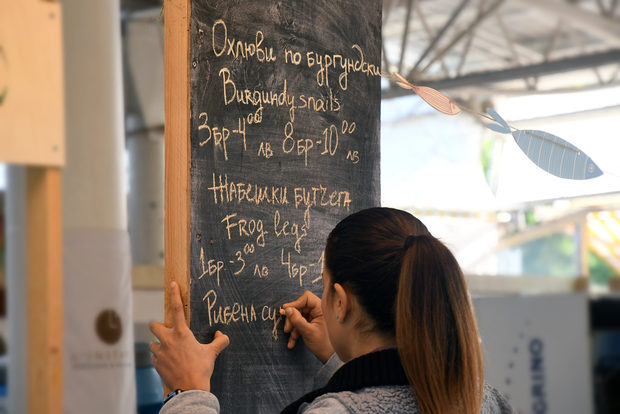 Охлюви по бургундски
Burgundy snails
3бр-4⁰⁰ лв 8бр-10⁰⁰ лв
Жабешки бутчета
Frog legs
1бр-3⁰⁰ лв 4бр-1
Рибена су